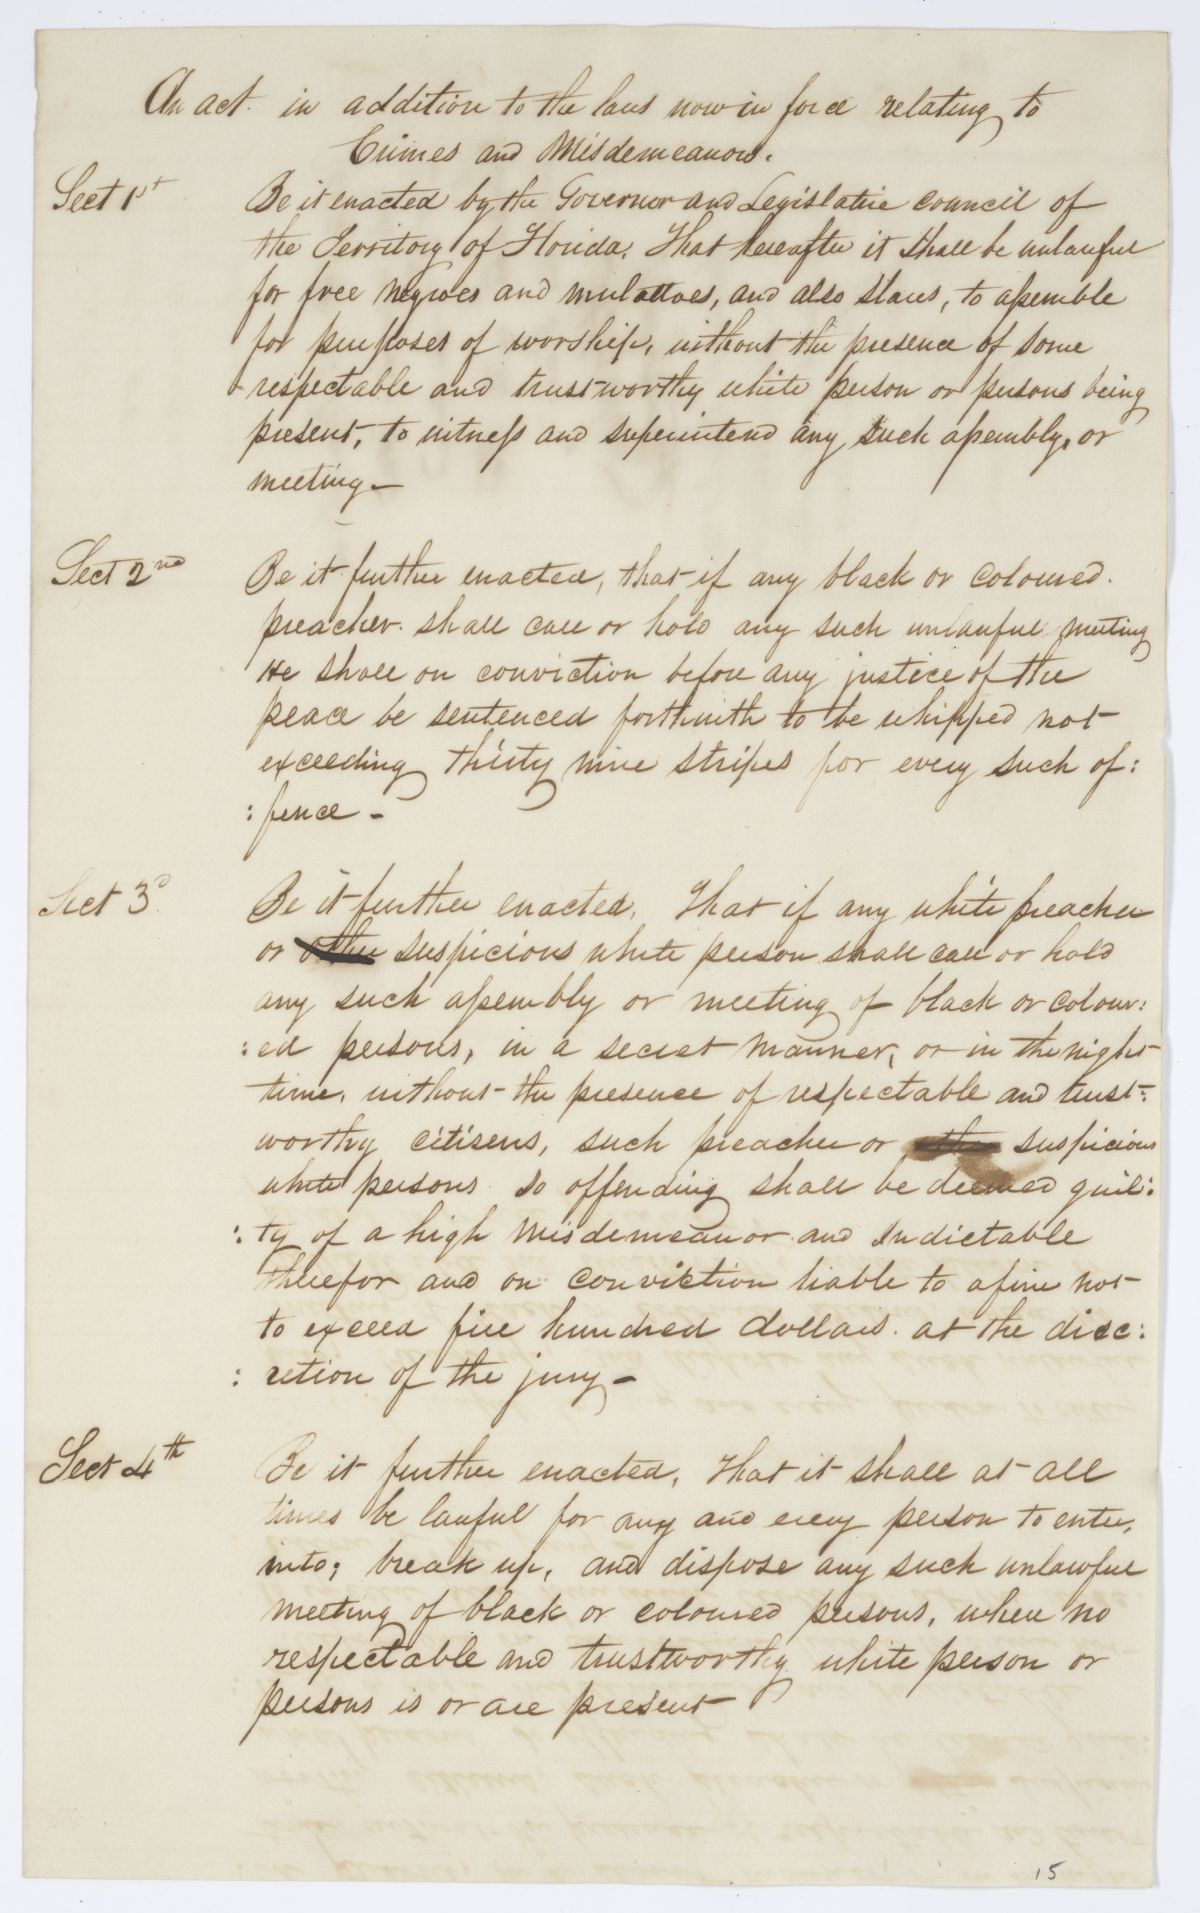 An act in addition to the laws now in force relating to
Crimes and Misdemeanors.
Sect 1st Be it enacted by the Governor and Legislative council of
the Territory of Florida, That hereafter it shall be unlawful
for free negroes and mulattoes, and also slaves, to assemble
for purposes of worship, without the presence of some
respectable and trustworthy white person or persons being
present, to witness and superintend any such assembly, or
meeting -
Sect 2nd Be it further enacted, that if any black or coloured
preacher shall call or hold any such unlawful meeting
He shall on conviction before any justice of the
peace be sentenced forthwith to be whipped not
exceeding thirty nine stripes for every such of:
: fence -
Sect 3d Be it further enacted, That if any white preacher
or other suspicious white person shall call or hold
any such assembly or meeting of black or colour:
: ed persons, in a secret manner, or in the night
time, without the presence of respectable and trust:
worthy citisens, such preacher or other suspicious
white persons so offending shall be deemed guil:
: ty of a high misdemeanor and indictable
therefor and on conviction liable to a fine not
to exceed five hundred dollars at the disc:
: retion of the jury -
Sect 4th Be it further enacted, That it shall at all
times be lawful for any and every person to enter,
into; break up, and dispose any such unlawful
meeting of black or coloured persons, when no
respectable and trustworthy white person or
persons is or are present
15